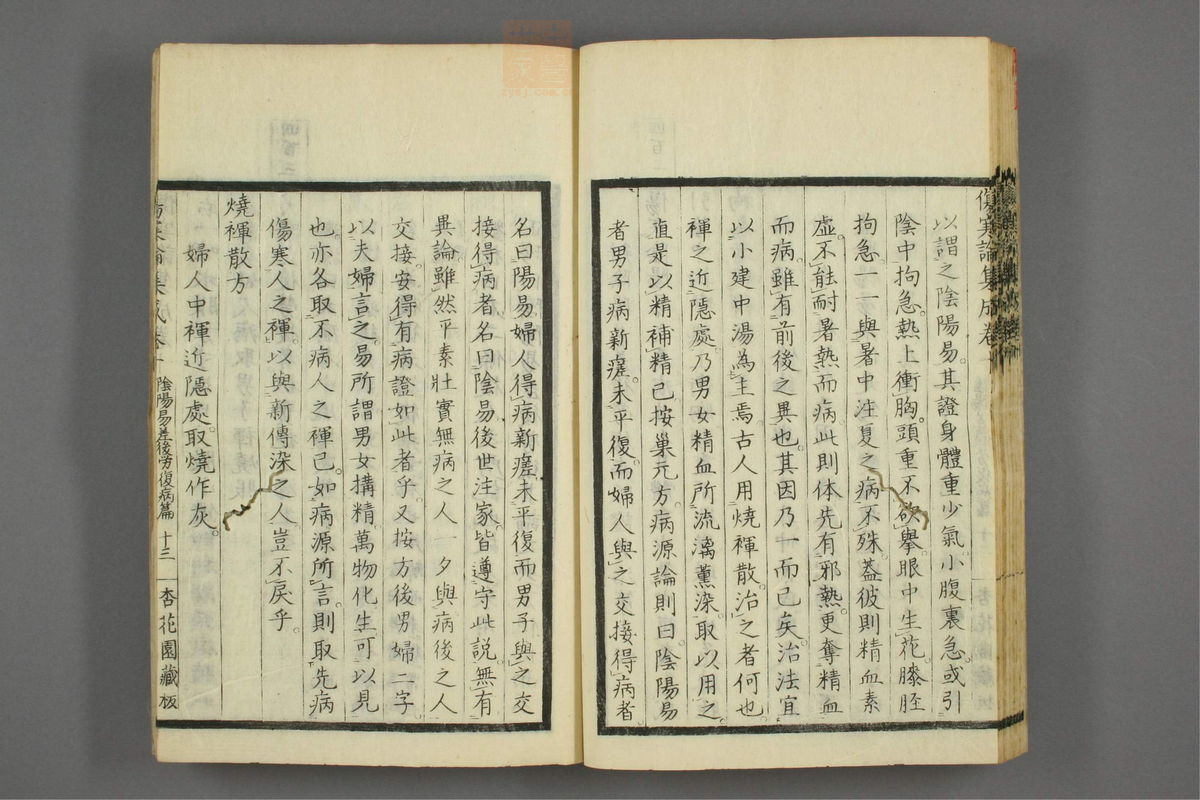 傷寒論集成卷
以謂之陰陽易其證身體重少氣小腹裏急或引
陰中拘急熱上衝胸頭重不欲擧眼中生花膝脛
拘急一一與暑中注夏之病不殊蓋彼則精血素
虛不能耐暑熱而病此則体先有邪熱更奪精血
而病雖有前後之異也其因乃一而已矣治法宜
以小建中湯為主焉古人用燒褌散治之者何也
褌之近隱處乃男女精血所流漓薰染取以用之
直是以精補精已按巢元方病源論則曰陰陽易
者男子病新瘥未平復而婦人與之交接得病者
名曰陽易婦人得病新瘥未平復而男子與之交
接得病者名曰陰易後世注家皆遵守此說無有
異論雖然平素壯實無病之人一夕與病後之人
交接安得有病證如此者乎又按方後男婦二字
以夫婦言之易所謂男女構精萬物化生可以見
也亦各取不病人之褌已如病源所言則取先病
傷寒人之褌以與新傳染之人豈不戾乎
燒褌散方
婦人中褌近隱處取燒作灰
陰陽易差後勞復病篇 十三 杏花園藏板